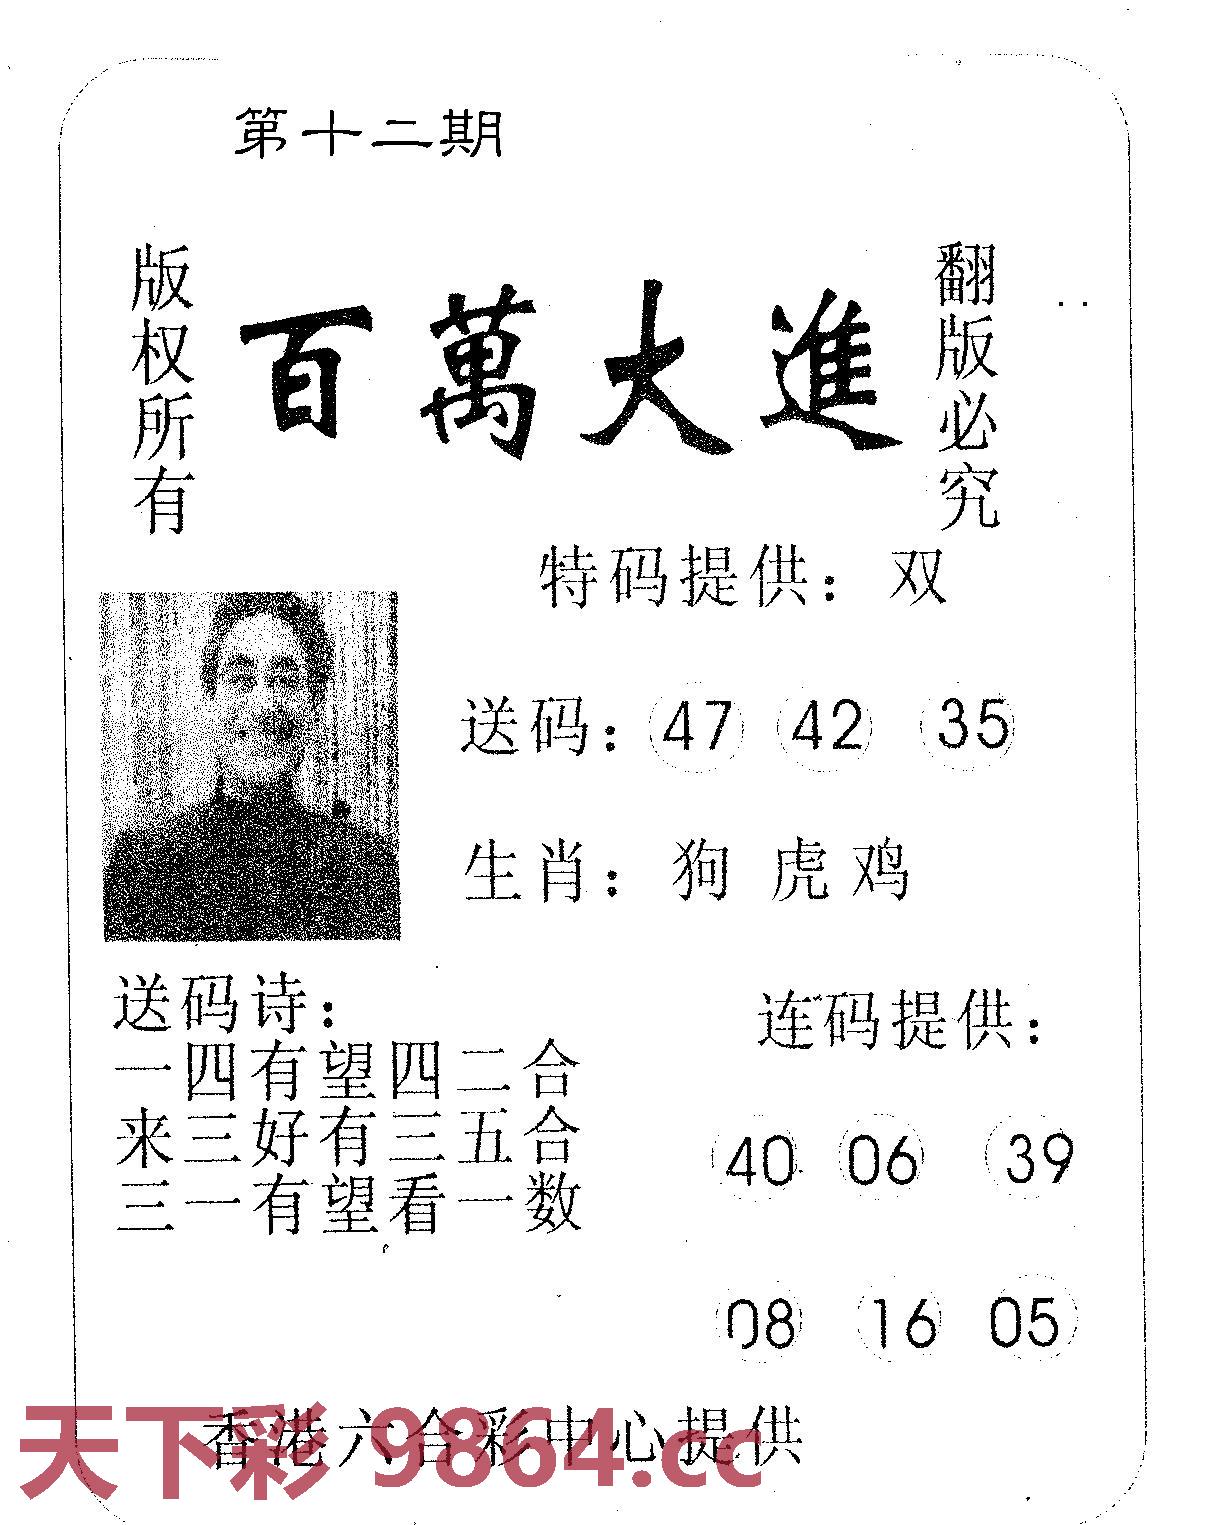 第十二期
版权所有
百萬大進
翻版必究
特码提供：双
送码：47 42 35
生肖：狗 虎 鸡
送码诗：
一四有望四二合
来三好有三五合
三一有望看一数
连码提供：
40 06 39
08 16 05
香港六合彩中心提供
天下彩 9864.cc